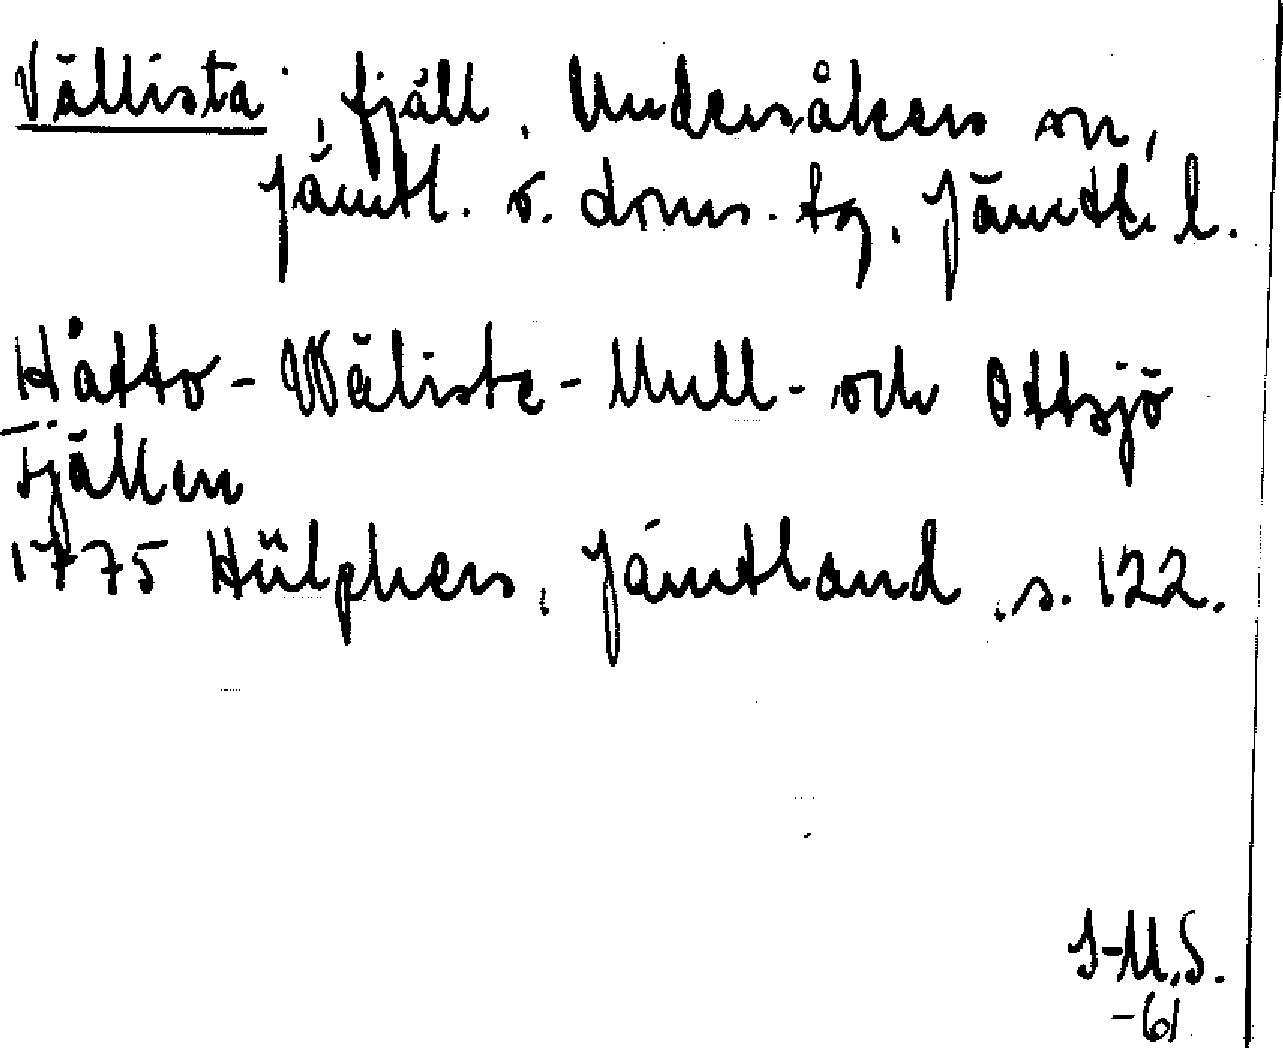 Vällista, fjäll, Undersåkers sn,
Jämtl. v. doms. tg, Jämtl. l.
Håtto - Wäliste - Mull - och Ottsjö
Fjällen
1775 Hülphers, Jämtland, s. 122.
I-M.S.
-61